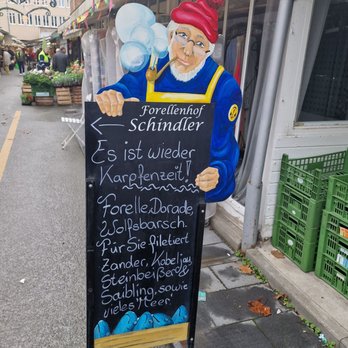 Forellenhof
Schindler
Es ist wieder
Karpfenzeit!
Forelle, Dorade,
Wolfsbarsch.
Für Sie filetiert
Zander, Kabeljau,
Steinbeißer &
Saibling, sowie
vieles "Meer"